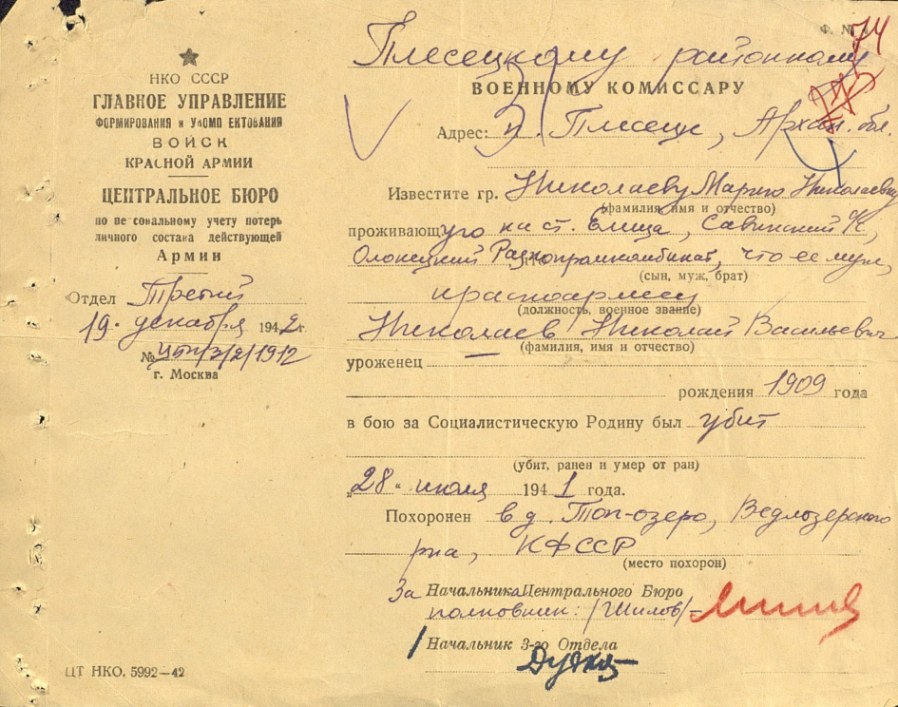 Ф. №
74
НКО СССР
ГЛАВНОЕ УПРАВЛЕНИЕ
ФОРМИРОВАНИЯ И УКОМПЛЕКТОВАНИЯ
ВОЙСК
КРАСНОЙ АРМИИ
ЦЕНТРАЛЬНОЕ БЮРО
по персональному учету потерь
личного состава действующей
Армии
Отдел Третий
19. декабря 1942 г.
№
г. Москва
Плесецкому районному
ВОЕННОМУ КОМИССАРУ
Адрес: п. Плесецк, Архан. обл.
Известите гр. Николаеву Марию Николаевну
(фамилия, имя и отчество)
проживающую на ст. Емца, Савинский
Олонецкий что ее муж,
(сын, муж, брат)
красноармеец
(должность, военное звание)
Николаев Николай Васильевич
(фамилия, имя и отчество)
уроженец —
рождения 1909 года
в бою за Социалистическую Родину был убит
(убит, ранен и умер от ран)
„28" июля 1941 года.
Похоронен в д. Топ-озеро, Ведлозерского
р-на, КФССР
(место похорон)
За Начальника Центрального Бюро
полковник: /Шилов/-
Начальник 3-го Отдела
ЦТ НКО. 5992—42